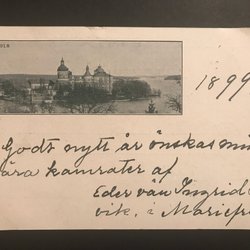 1899
Godt nytt år önskas min
kära kamrater af
Eder vän Ingrid
vik. i Mariefr